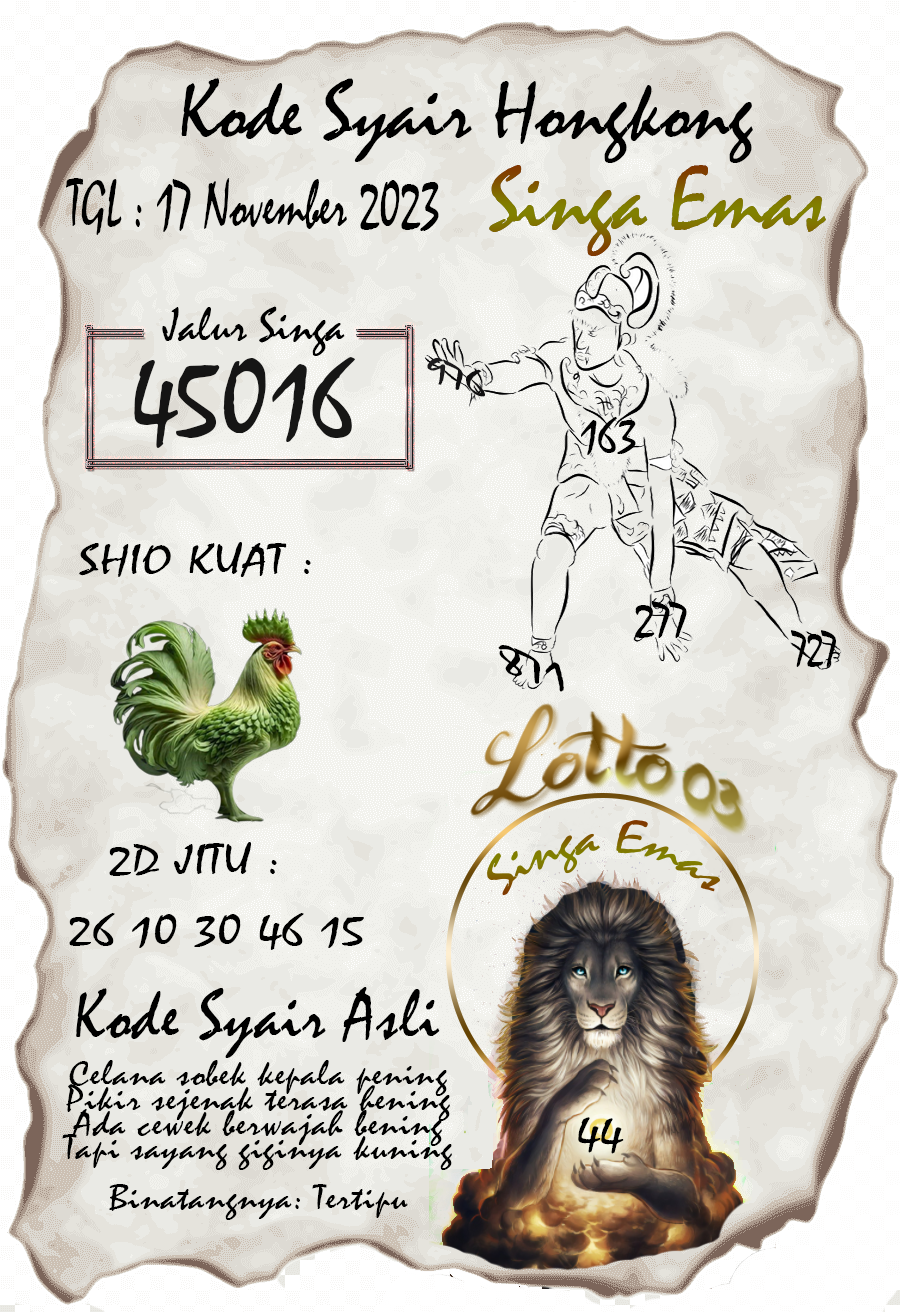 Kode Syair Hongkong
TGL : 17 November 2023
Singa Emas
Jalur Singa
45016
163
277
727
SHIO KUAT :
Lotto 03
Singa Emas
2D JITU :
26 10 30 46 15
Kode Syair Asli
Celana sobek kepala pening
Pikir sejenak terasa hening
Ada cewek berwajah bening
Tapi sayang giginya kuning
44
Binatangnya: Tertipu